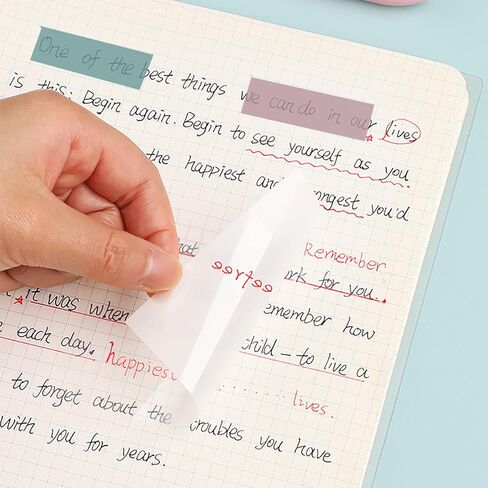 One of the best things we can do in our lives
is this: Begin again. Begin to see yourself as you
the happiest and you'd
Remember
work for you.
it was when remember how
each day. happiest child – to live a
lives.
to forget about the troubles you have
with you for years.